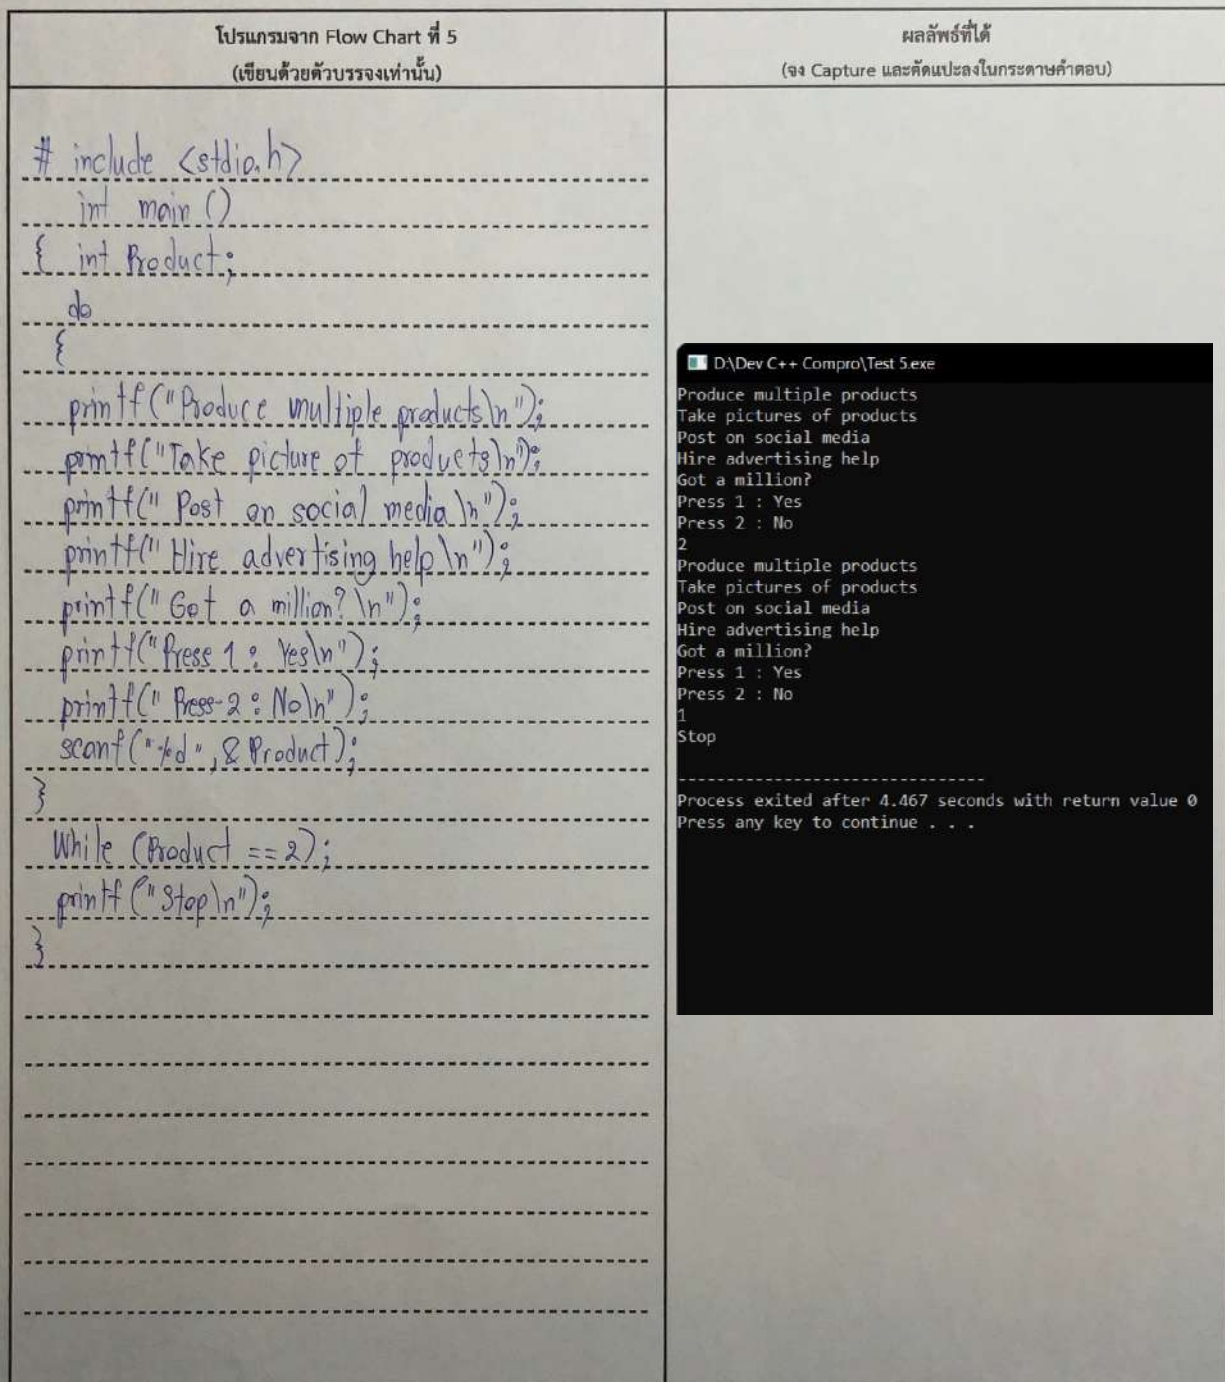 โปรแกรมจาก Flow Chart ที่ 5
(เขียนด้วยตัวบรรจงเท่านั้น)
ผลลัพธ์ที่ได้
(จง Capture และตัดแปะลงในกระดาษคำตอบ)
# include <stdio.h>
int main ()
{ int Product;
do
{
printf("Produce multiple products\n");
printf("Take picture of products\n");
printf(" Post on social media \n");
printf(" Hire advertising help \n");
printf(" Got a million? \n");
printf("Press 1 : Yes\n");
printf(" Press-2 : No\n" );
scanf("%d", & Product);
}
While (Product == 2);
printf ("Stop\n");
}
D:\Dev C++ Compro\Test 5.exe
Produce multiple products
Take pictures of products
Post on social media
Hire advertising help
Got a million?
Press 1 : Yes
Press 2 : No
2
Produce multiple products
Take pictures of products
Post on social media
Hire advertising help
Got a million?
Press 1 : Yes
Press 2 : No
1
Stop
--------------------------------
Process exited after 4.467 seconds with return value 0
Press any key to continue . . .